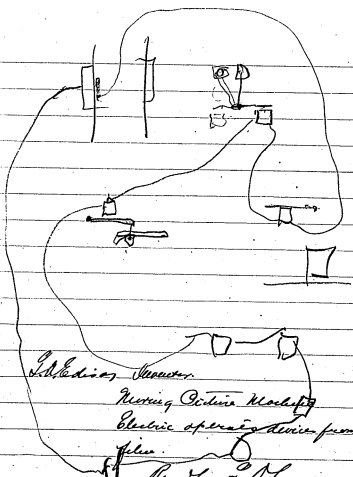 T.A. Edison Inventor.
Moving Picture Machine
Electric operated device from
film.